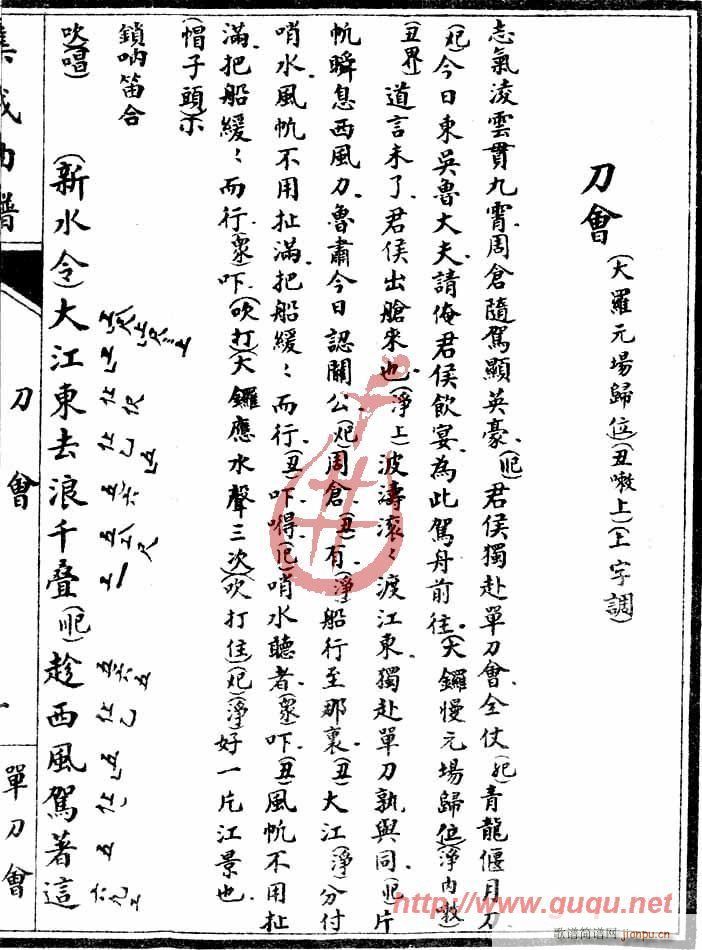 刀會
(大羅元場歸位)(丑嗽上)(上字調)
志氣淩雲貫九霄.周倉隨駕顯英豪.(𠯈)君侯獨赴單刀會.全仗(𠯈)青龍偃月刀.
(𠯈)今日東吳魯大夫.請俺君侯飲宴.為此駕舟前往.(大鑼慢元場歸位)(淨內嗽)
(丑界)道言未了.君侯出艙來也.(淨上)波濤滾〻渡江東.獨赴單刀孰與同.(𠯈)片
帆瞬息西風力.魯肅今日認關公.(𠯈)周倉.(丑)有.(淨)船行至那裏.(丑)大江.(淨)分付
哨水.風帆不用扯滿.把船緩〻而行.(丑)吓.嘚.(𠯈)哨水聽者.(衆)吓.(丑)風帆不用扯
滿.把船緩〻而行.(衆)吓.(吹打)(大鑼應水聲三次)(吹打住)(𠯈)(淨)好一片江景也.
(帽子頭)(示)
鎖吶笛合
吹唱
(新水令)大江東去浪千叠.(𠯈)趁西風駕著這
集成曲譜
刀會
單刀會
http://www.guqu.net
歌谱简谱网
jianpu.cn